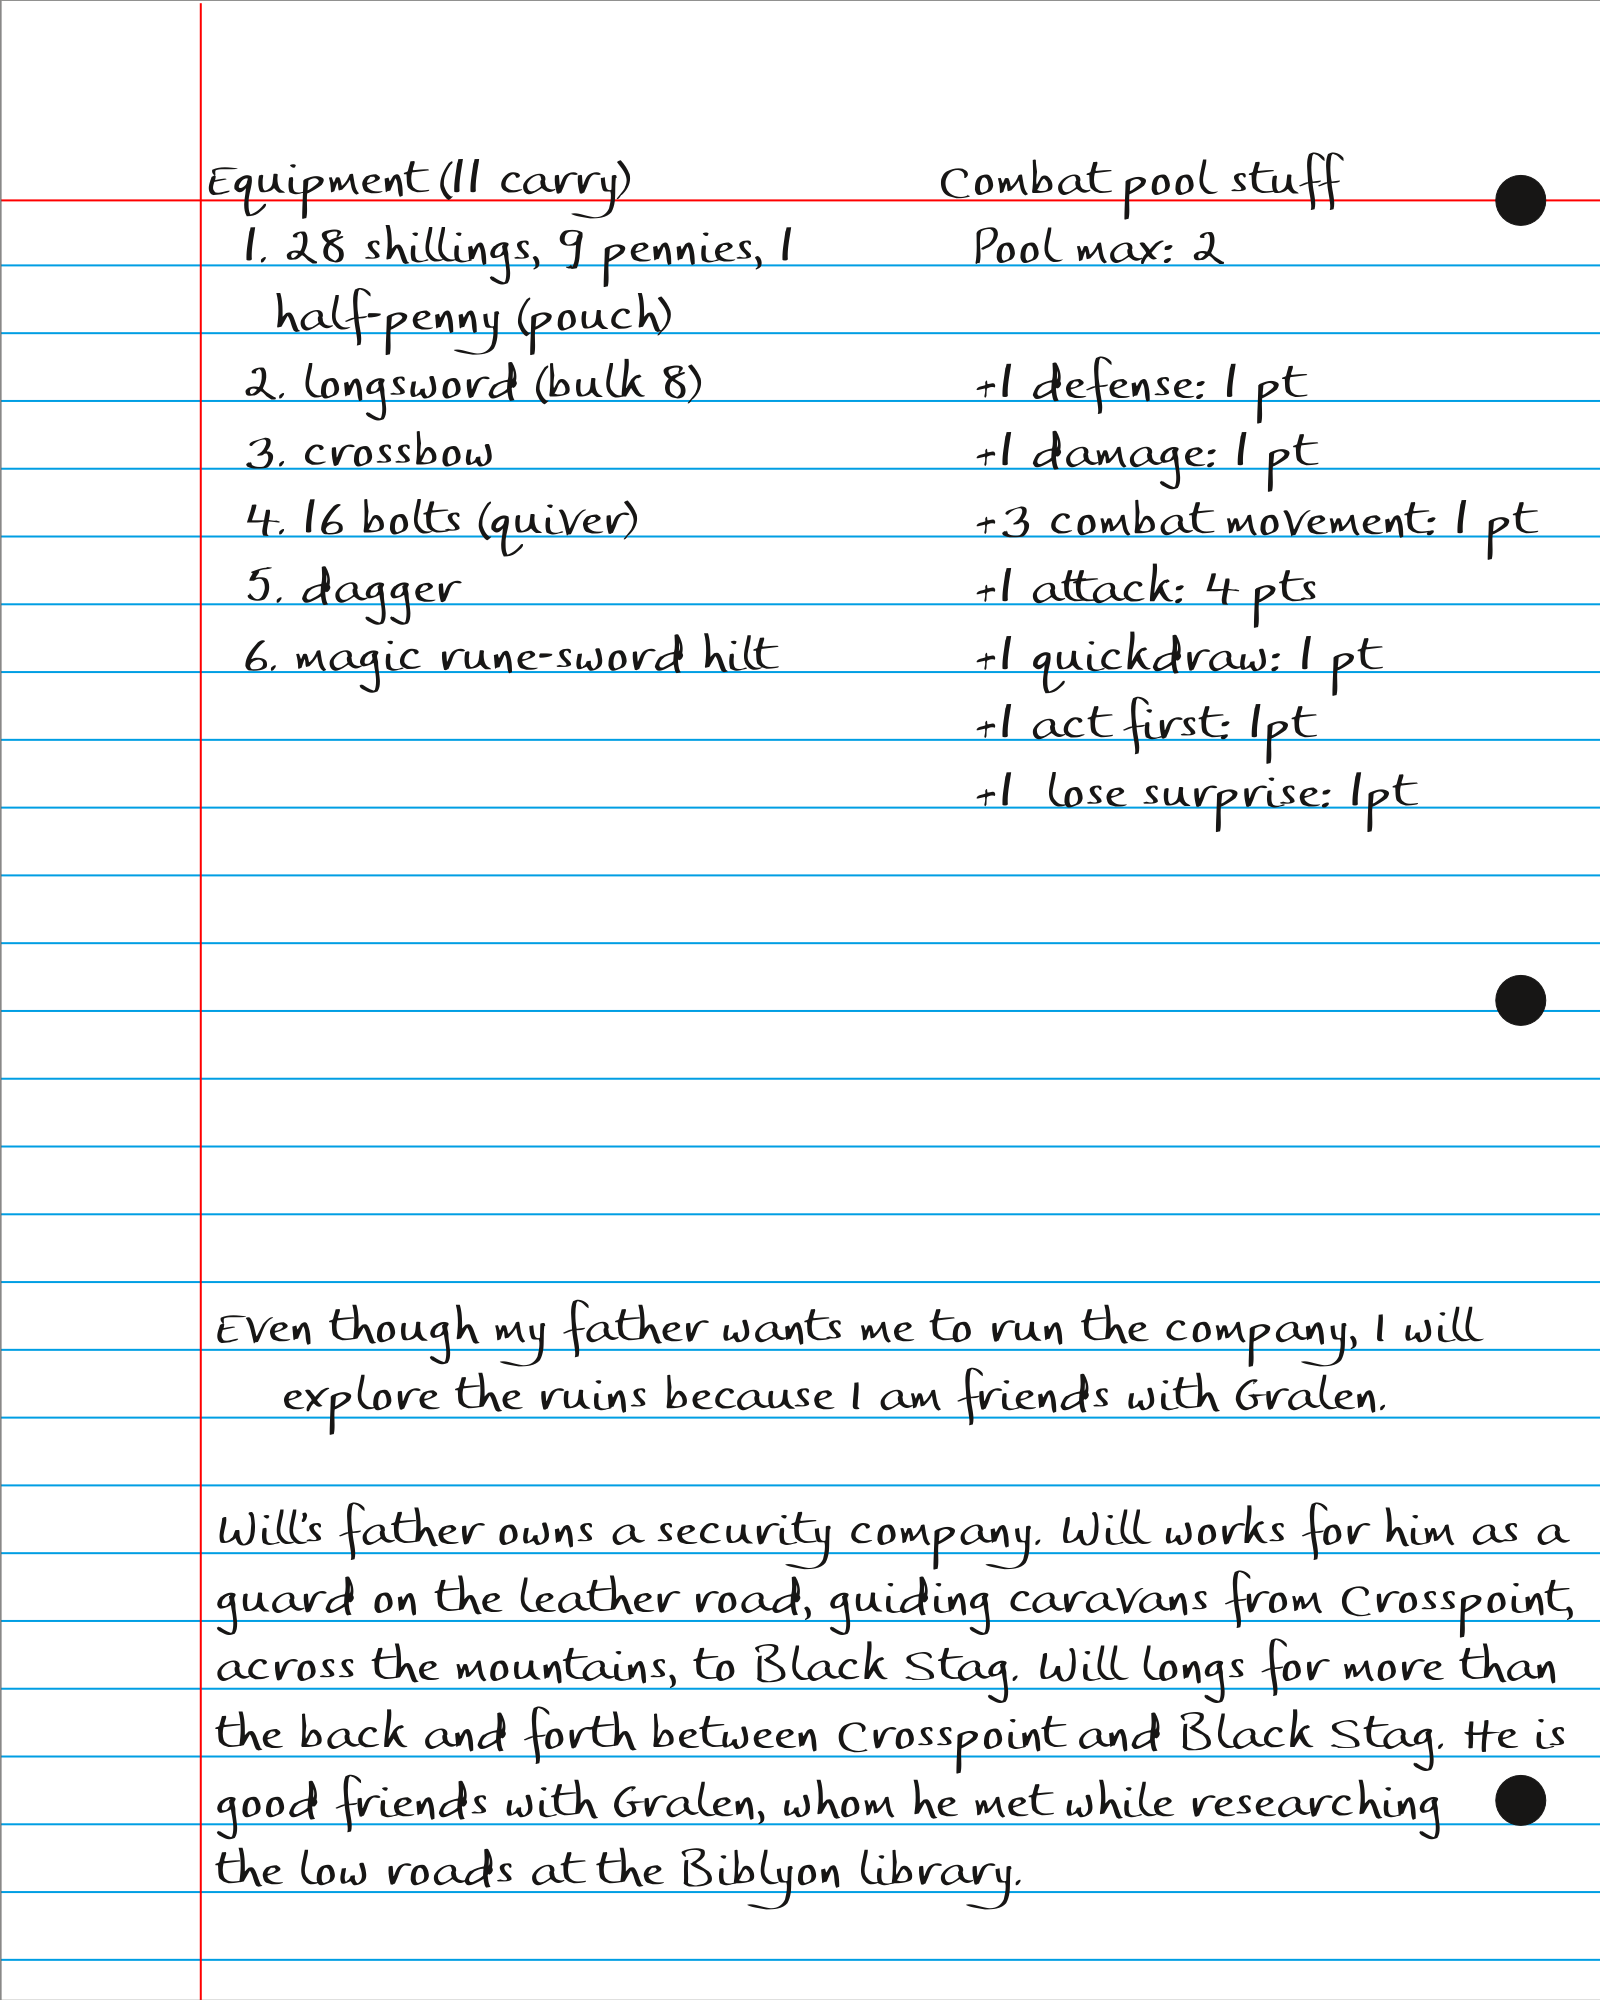 Equipment (11 carry)
1. 28 shillings, 9 pennies, 1
half-penny (pouch)
2. longsword (bulk 8)
3. crossbow
4. 16 bolts (quiver)
5. dagger
6. magic rune-sword hilt
Combat pool stuff
Pool max: 2
+1 defense: 1 pt
+1 damage: 1 pt
+3 combat movement: 1 pt
+1 attack: 4 pts
+1 quickdraw: 1 pt
+1 act first: 1pt
+1 lose surprise: 1pt
Even though my father wants me to run the company, I will
explore the ruins because I am friends with Gralen.
Will's father owns a security company. Will works for him as a
guard on the leather road, guiding caravans from Crosspoint,
across the mountains, to Black Stag. Will longs for more than
the back and forth between Crosspoint and Black Stag. He is
good friends with Gralen, whom he met while researching
the low roads at the Biblyon library.